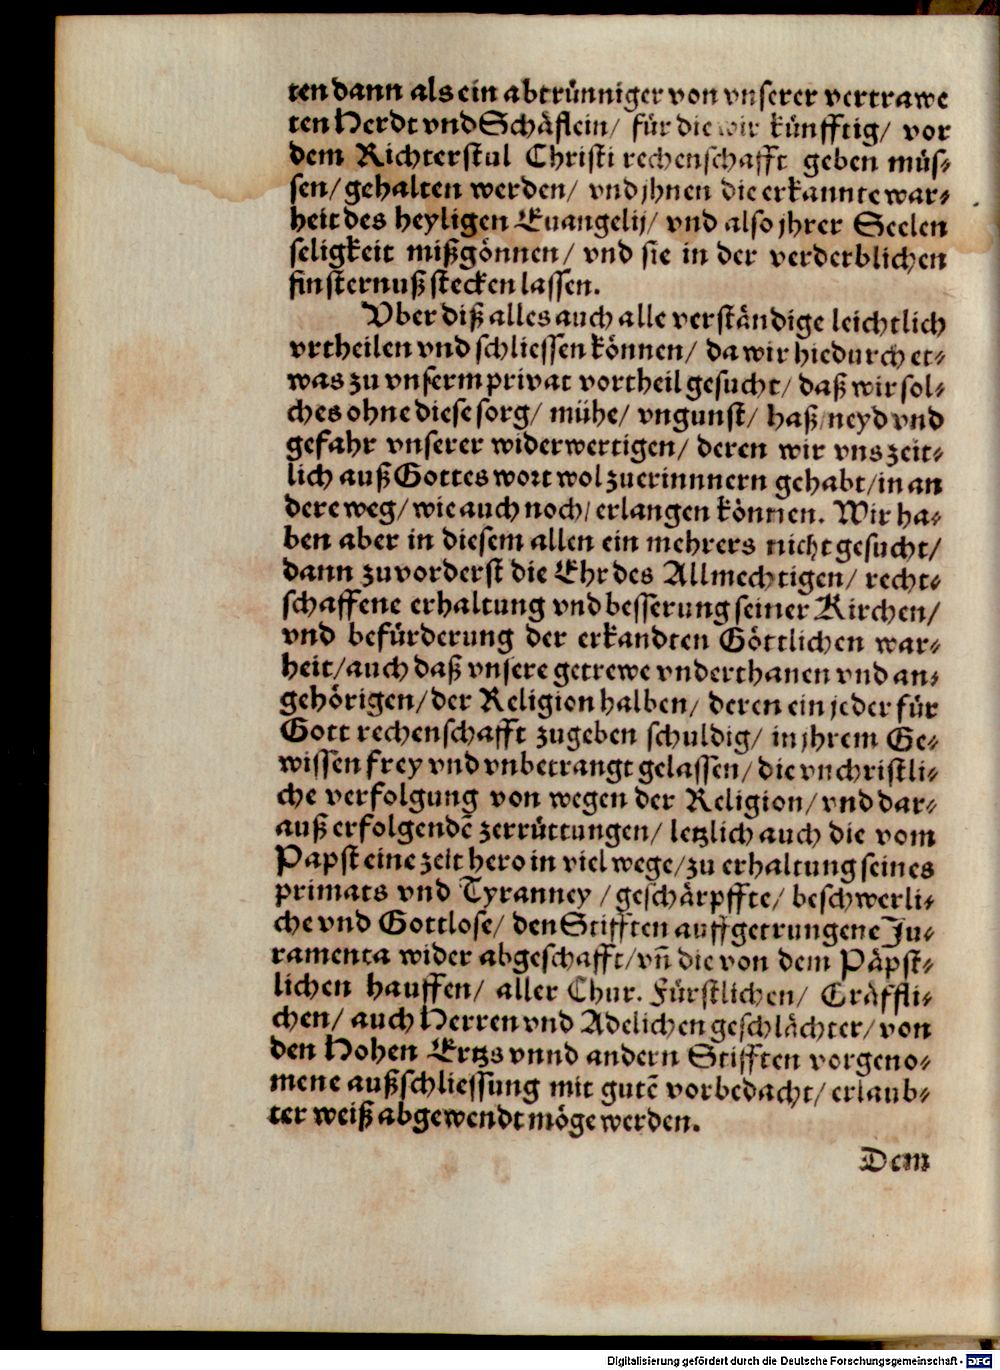 ten dann als ein abtrünniger von vnserer vertrawe
ten Herdt vnd Schäflein/ für die wir künfftig/ vor
dem Richterstul Christi rechenschafft geben müs-
sen/ gehalten werden/ vnd jhnen die erkannte war-
heit des heyligen Euangelij/ vnd also jhrer Seelen
seligkeit mißgönnen/ vnd sie in der verderblichen
finsternuß stecken lassen.
Vber diß alles auch alle verständige leichtlich
vrtheilen vnd schliessen können/ da wir hiedurch et-
was zu vnserm privat vortheil gesucht/ daß wir sol-
ches ohne diese sorg/ mühe/ vngunst/ haß/ neyd vnd
gefahr vnserer widerwertigen/ deren wir vns zeit-
lich auß Gottes wort wol zuerinnnern gehabt/ in an
dere weg/ wie auch noch/ erlangen können. Wir ha-
ben aber in diesem allen ein mehrers nicht gesucht/
dann zuvorderst die Ehr des Allmechtigen/ recht-
schaffene erhaltung vnd besserung seiner Kirchen/
vnd befürderung der erkandten Göttlichen war-
heit/ auch daß vnsere getrewe vnderthanen vnd an-
gehörigen/ der Religion halben/ deren ein jeder für
Gott rechenschafft zugeben schuldig/ in jhrem Ge-
wissen frey vnd vnbetrangt gelassen/ die vnchristli-
che verfolgung von wegen der Religion/ vnd dar-
auß erfolgendē zerrüttungen/ letzlich auch die vom
Papst eine zeit hero in viel wege/ zu erhaltung seines
primats vnd Tyranney / geschärpffte/ beschwerli-
che vnd Gottlose/ den Stifften auffgetrungene Ju-
ramenta wider abgeschafft/ vñ die von dem Päpst-
lichen hauffen/ aller Chur. Fürstlichen/ Gräffli-
chen/ auch Herren vnd Adelichen geschlächter/ von
den Hohen Ertzs vnnd andern Stifften vorgeno-
mene außschliessung mit gutē vorbedacht/ erlaub-
ter weiß abgewendt möge werden.
Dem
Digitalisierung gefördert durch die Deutsche Forschungsgemeinschaft - DFG